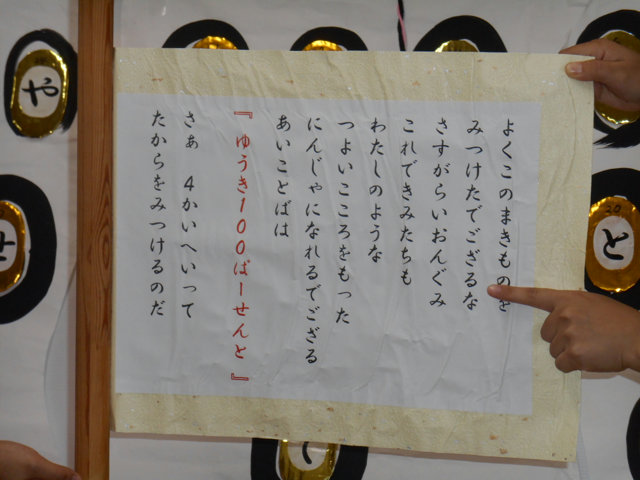 よくこのまきものを
みつけたでござるな
さすがらいおんぐみ
これできみたちも
わたしのような
つよいこころをもった
にんじゃになれるでござる
あいことばは
『ゆうき100ぱーせんと』
さぁ 4かいへいって
たからをみつけるのだ
や
せ
と
20